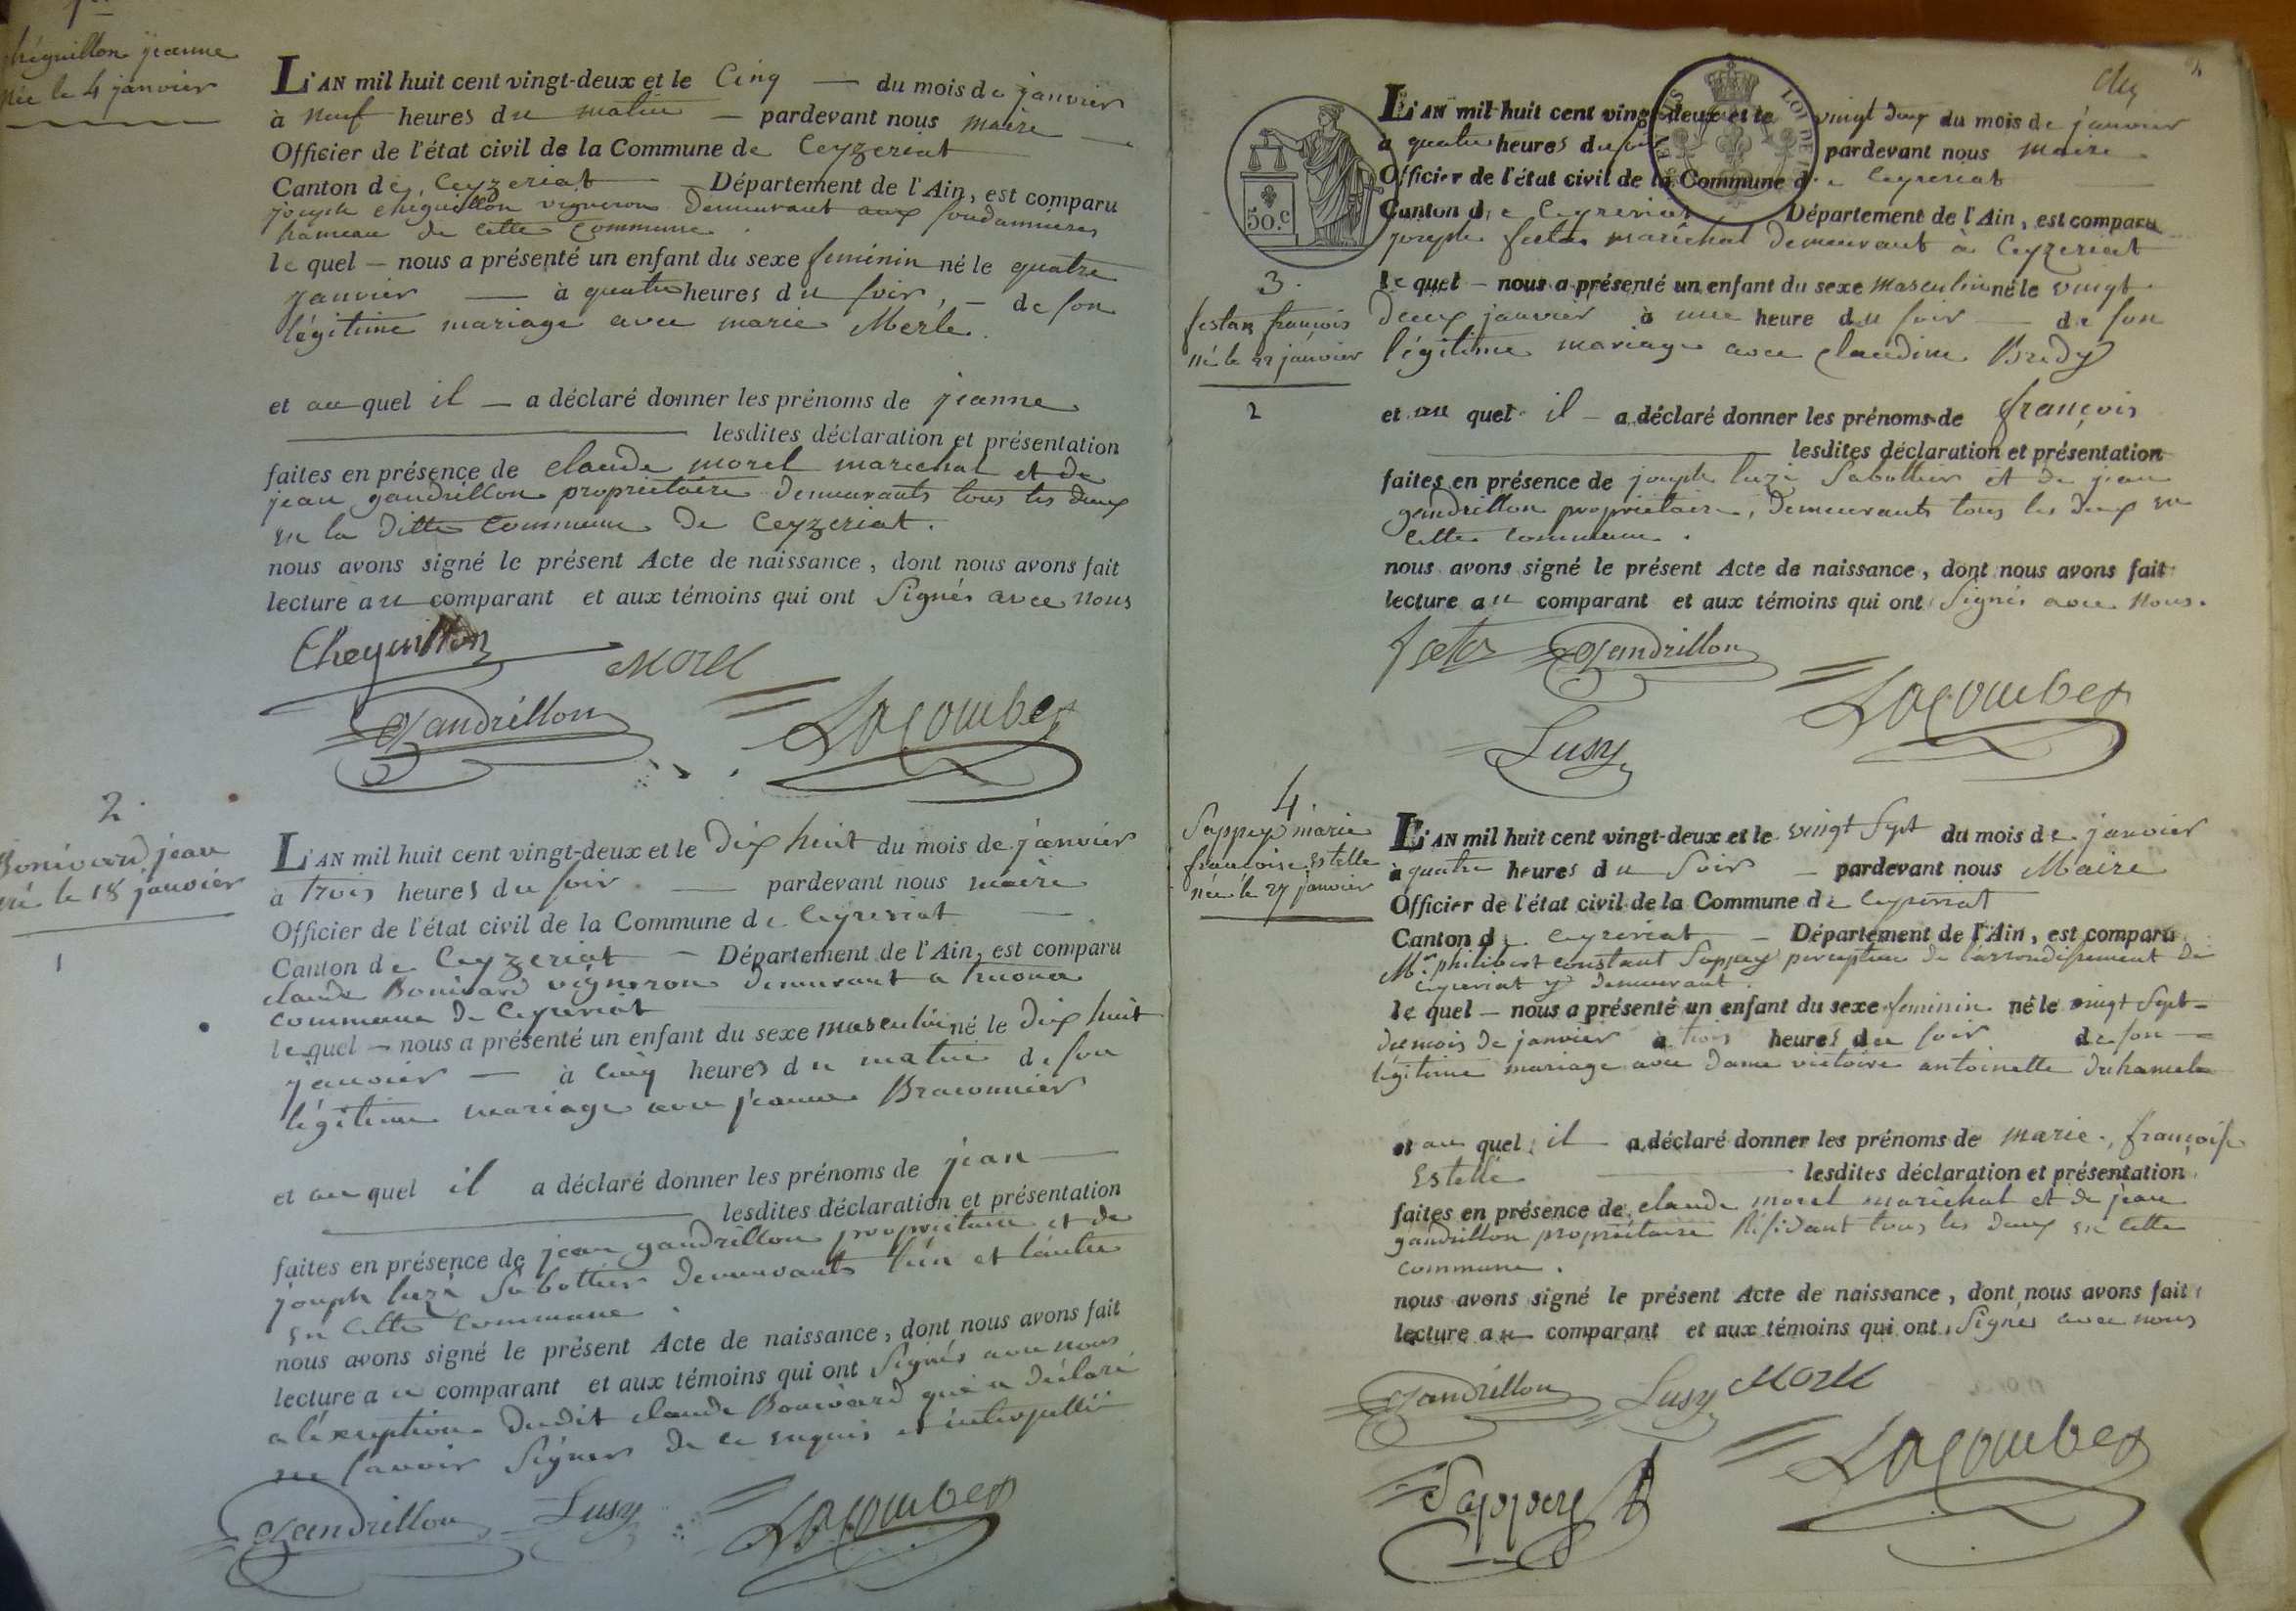 chéguillon jeanne
née le 4 janvier
L'AN mil huit cent vingt-deux et le Cinq du mois de janvier
à neuf heures du matin pardevant nous maire
Officier de l'état civil de la Commune de Ceyzeriat
Canton de Ceyzeriat Département de l'Ain, est comparu
joseph cheguillon vigneron demeurant aux soudannieres
hameau de cette commune.
le quel nous a présenté un enfant du sexe feminin né le quatre
janvier à quatre heures du soir, de son
légitime mariage avec marie Merle.
et au quel il a déclaré donner les prénoms de jeanne
lesdites déclaration et présentation
faites en présence de claude morel marechal et de
jean gandrillon proprietaire demeurants tous les deux
en la ditte commune de Ceyzeriat.
nous avons signé le présent Acte de naissance, dont nous avons fait
lecture au comparant et aux témoins qui ont Signés avec nous
Cheguillon
Morel
Gandrillon
Lacombe
2.
Bonivard jean
né le 18 janvier
1
L'AN mil huit cent vingt-deux et le Dix huit du mois de janvier
à trois heures du soir pardevant nous maire
Officier de l'état civil de la Commune de Ceyzeriat
Canton de Ceyzeriat Département de l'Ain, est comparu
claude Bonivard vigneron demeurant a
commune de Ceyzeriat
le quel nous a présenté un enfant du sexe masculin né le dix huit
janvier à cinq heures du matin de son
légitime mariage avec jeanne Braconnier
et au quel il a déclaré donner les prénoms de jean
lesdites déclaration et présentation
faites en présence de jean gandrillon proprietaire et de
joseph luzi Sabottier demeurants l'un et l'autre
en cette commune.
nous avons signé le présent Acte de naissance, dont nous avons fait
lecture au comparant et aux témoins qui ont Signés avec nous
a l'exception dudit claude Bonivard qui a déclaré
ne savoir Signer de ce enquis et interpellé
Gandrillon
Lusy
Lacombe
50.c
L'AN mil huit cent vingt-deux et le vingt deux du mois de janvier
à quatre heures du soir pardevant nous maire
Officier de l'état civil de la Commune de Ceyzeriat
Canton de Ceyzeriat Département de l'Ain, est comparu
joseph festas maréchal demeurant à Ceyzeriat
3.
festas françois
né le 22 janvier
2
le quel nous a présenté un enfant du sexe masculin né le vingt
deux janvier à une heure du soir de son
légitime mariage avec claudine Bredy
et au quel il a déclaré donner les prénoms de françois
lesdites déclaration et présentation
faites en présence de joseph luzi Sabottier et de jean
gandrillon proprietaire, demeurants tous les deux en
cette commune.
nous avons signé le présent Acte de naissance, dont nous avons fait
lecture au comparant et aux témoins qui ont Signés avec nous.
Gandrillon
Lacombe
Lusy
4.
Sappey marie
francoise estelle
née le 27 janvier
L'AN mil huit cent vingt-deux et le vingt Sept du mois de janvier
à quatre heures du Soir pardevant nous Maire
Officier de l'état civil de la Commune de Ceyzeriat
Canton de Ceyzeriat Département de l'Ain, est comparu
Mr. philibert constant Sappey percepteur de l'arrondissement de
Ceyzeriat y demeurant.
le quel nous a présenté un enfant du sexe feminin né le vingt Sept
du mois de janvier à trois heures du soir de son
légitime mariage avec dame victoire antoinette duhamel
et au quel il a déclaré donner les prénoms de marie, françoise
Estelle lesdites déclaration et présentation
faites en présence de claude morel maréchal et de jean
gandrillon propriétaire Résidant tous les deux en cette
commune.
nous avons signé le présent Acte de naissance, dont nous avons fait
lecture au comparant et aux témoins qui ont Signés avec nous
Gandrillon
Lusy
Morel
Sappey
Lacombe